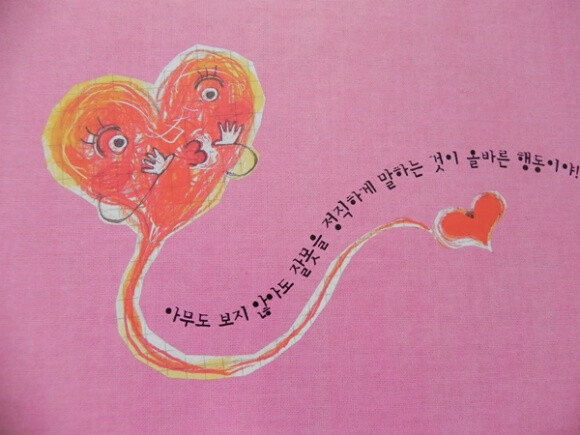 아무도 보지 않아도 잘못을 정직하게 말하는 것이 올바른 행동이야!